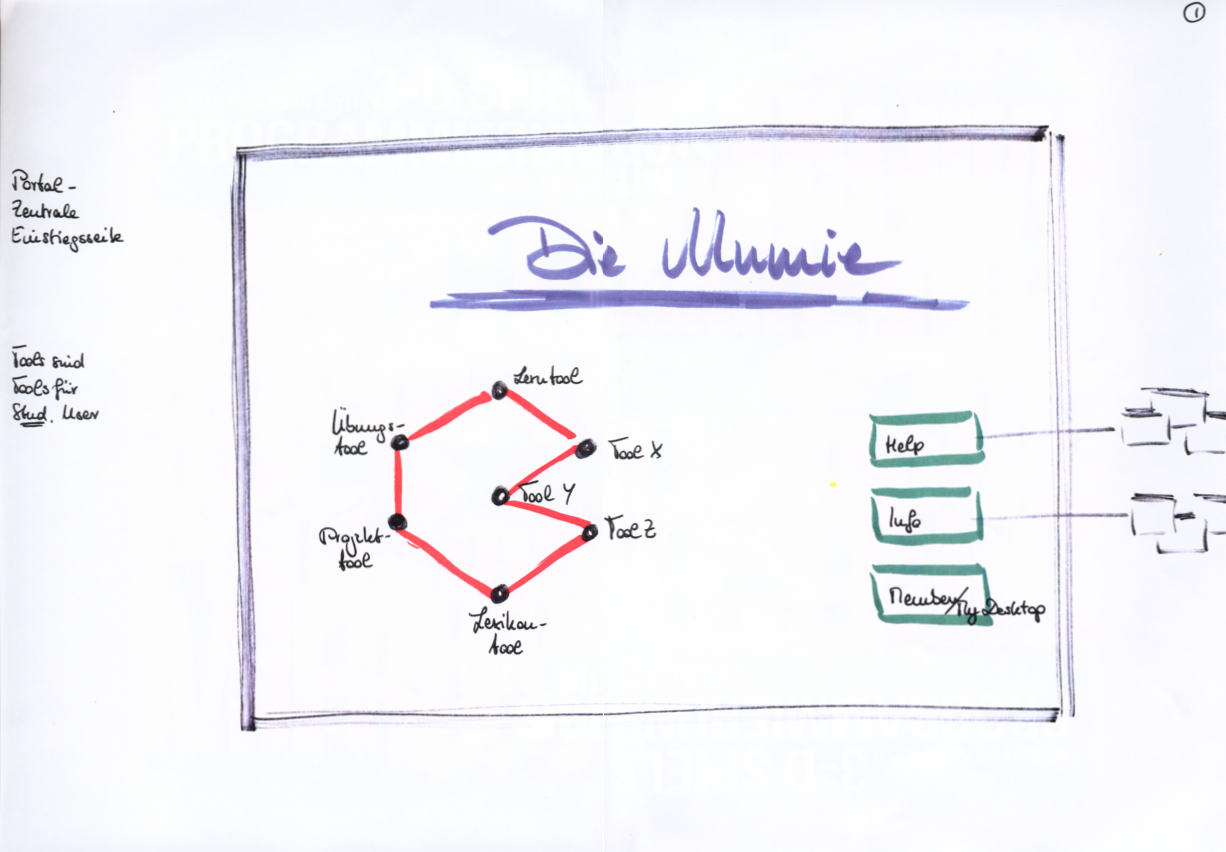 1
Portal-
Zentrale
Einstiegsseite
Die Mumie
Tools sind
Tools für
Stud. User
Lerntool
Übungs-
tool
Tool X
Tool Y
Projekt-
tool
Tool Z
Lexikon-
tool
Help
Info
Member/My Desktop